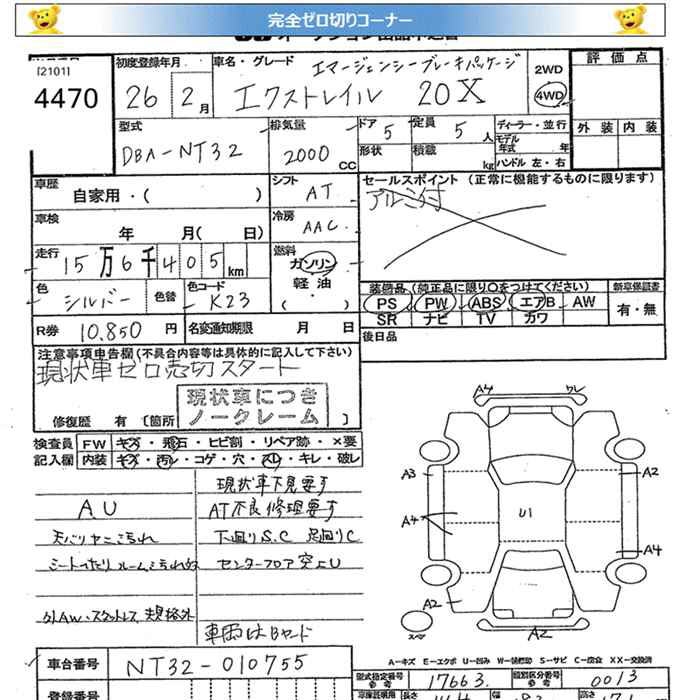 完全ゼロ切りコーナー
[2101]
4470
初度登録年月
26 2月
車名・グレード
エマージェンシーブレーキパッケージ
エクストレイル 20X
2WD
4WD
評価点
外装 内装
型式
DBA-NT32
排気量
2000 CC
ドア 5
定員 5人
形状
積載 kg
ディーラー・並行
モデル年式 年
ハンドル 左・右
車歴
自家用・( )
シフト
AT
セールスポイント (正常に機能するものに限ります)
アルミ付
車検
年 月( 日)
冷房
AAC
走行
15万6千405km
燃料
ガソリン
軽油
( ・ )
色
シルバー
色替
色コード
K23
装備品(純正品に限り○をつけてください)
PS PW ABS エアB AW
SR ナビ TV カワ
新車保証書
有・無
R券 10,850 円
名変通知期限 月 日
後日品
注意事項申告欄(不具合内容等は具体的に記入して下さい)
現状車ゼロ売切スタート
現状車につき
ノークレーム
修復歴 有 [箇所 ]
検査員
記入欄
FW キズ・飛石・ヒビ割・リペア跡・×要
内装 キズ・汚れ・コゲ・穴・スレ・キレ・破レ
現状車下見要す
A.U AT不良修理要す
天バリヤニ汚れ 下廻りS.C 足廻りC
センターフロア突上U
外AW・スタッドレス規格外
車両はBヤード
A4 ワレ
A3 A2
A4 U1 A4
A2
スペア A2
A-キズ E-エクボ U-凹み W-補修跡 S-サビ C-腐食 XX-交換済
車台番号
NT32-010755
型式指定番号
参考
17663
類別区分番号
参考
0013
登録番号